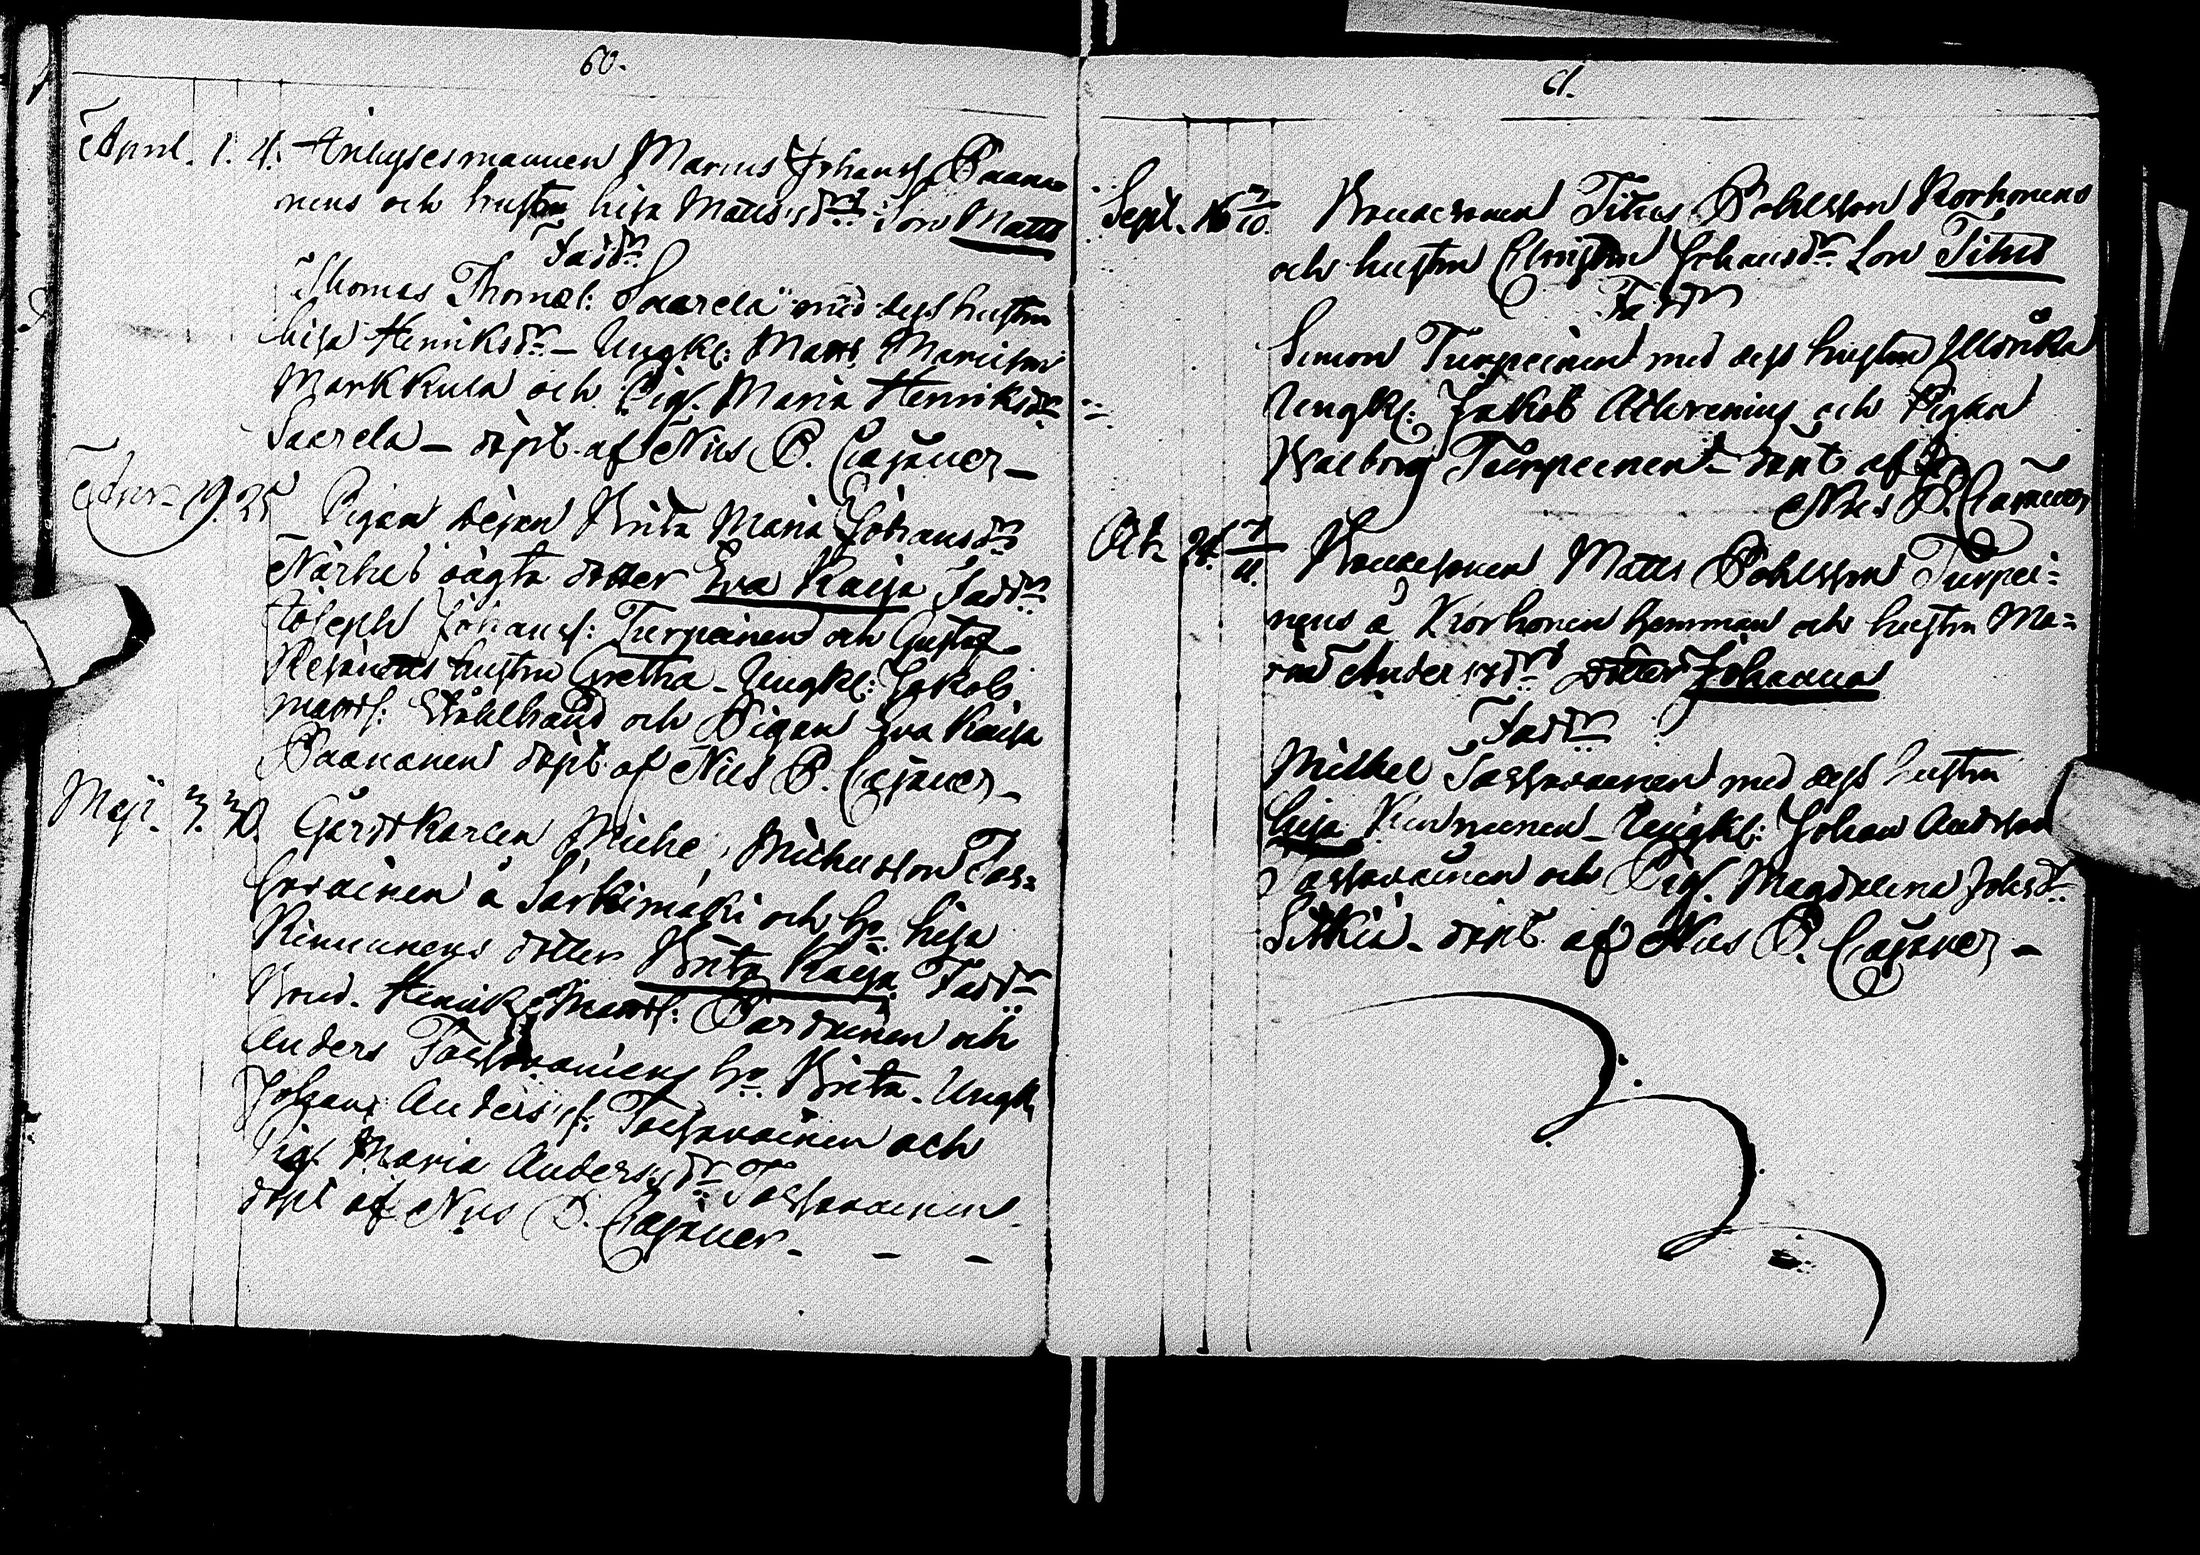 60.
April. 1. 4. Inhysesmannen Marcus Johanss. Paana
nens och hustru Lisa Matts dr: Son Matts
Faddr
Thomas Thomæs: Saarela med dess hustru
Lisa Henriksdr – Ungkl: Matts Marcusson
Markkula och Pig. Maria Henriksdr
Saarela – döpt af Nils P. Cajaner –
19. 25 Pigan Brita Maria Johansdr
oägta dotter Eva Kaisa Faddr
Joseph Johanss: Turpeinen och Gustaf
hustru Gretha – Ungkl: Jakob
Mattss: Ståhlbrand och Pigan Eva Kaisa
Paananen döpt af Nils P. Cajaner –
Maji. 3. 30. Gårdkarlen Michel Michelsson Tas-
savainen å Särkimäki och ho. Lisa
Kinnunens dotter Brita Kaisa Faddr
Bond. Henrik Mattss: Partainen och
Anders Tassavainens ho. Brita – Ungk.
Johan Anderss: Tassavainen och
Pig. Maria Andersdr Tassavainen
döpt af Nils P. Cajaner – – –
61.
Sept. 16 2/10. Bondesonen Titus Pohlsson Korhonens
och hustru Christin Johansdr Son Titus
Faddr
Simon Turpeinen med dess hustru Ulrika
Ungkl: Jakob Alcenius och Pigan
Walborg Turpeinen – döpt af
Nils P. Cajaner
Oct. 24. 7/11. Bondesonen Matts Pohlsson Turpei-
nens å Korhonen hemman och hustru Ma-
ria Andersdr dotter Johanna
Faddr
Mickel Tassavainen med dess hustru
Lisa Kinnunen – Ungkl: Johan Andersson
Tassavainen och Pig. Magdalena Johsdr
Sitkiä – döpt af Nils P. Cajaner –